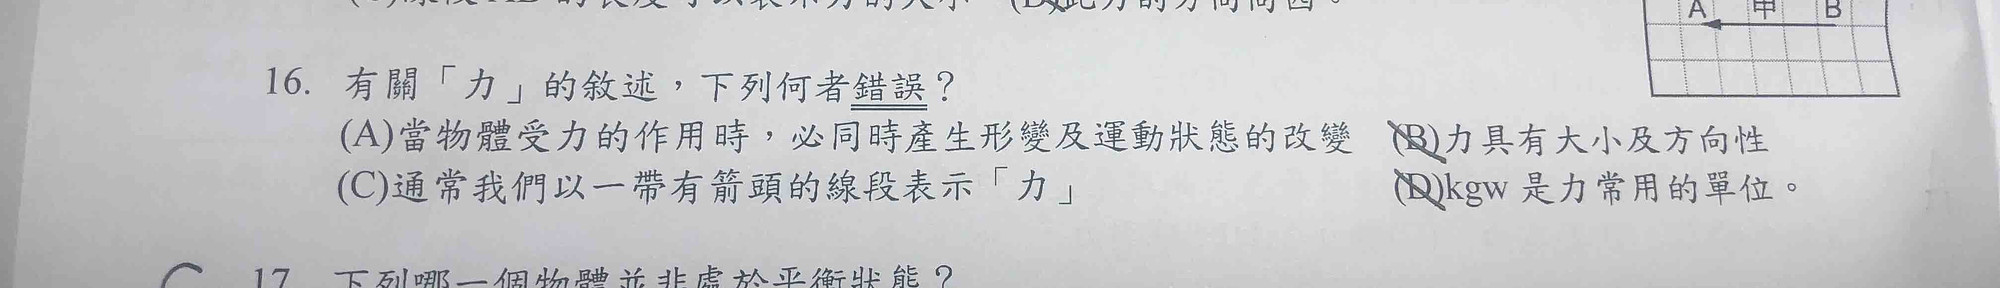 A 甲 B
16. 有關「力」的敘述，下列何者錯誤？
(A)當物體受力的作用時，必同時產生形變及運動狀態的改變 (B)力具有大小及方向性
(C)通常我們以一帶有箭頭的線段表示「力」 (D)kgw 是力常用的單位。
17. 下列哪一個物體並非處於平衡狀態？